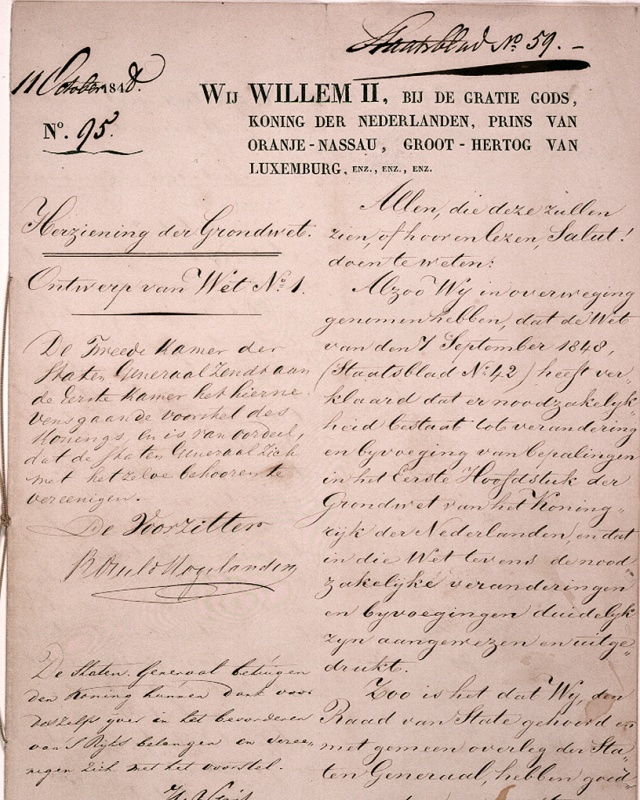 Staatsblad No. 59. –
11 October 1848.
No. 95.
WIJ WILLEM II, BIJ DE GRATIE GODS,
KONING DER NEDERLANDEN, PRINS VAN
ORANJE-NASSAU, GROOT-HERTOG VAN
LUXEMBURG, ENZ., ENZ., ENZ.
Herziening der Grondwet.
Ontwerp van Wet No. 1.
De Tweede Kamer der
Staten Generaal zendt aan
de Eerste Kamer het hierne
vensgaande voorstel des
Konings, en is van oordeel,
dat de Staten Generaal zich
met hetzelve behooren te
vereenigen.
De Voorzitter
De Staten-Generaal betuigen
den Koning hunnen dank voor
deszelfs yver in het bevorderen
van 's Ryks belangen en veree„
nigen zich met het voorstel.
Allen, die deze zullen
zien, of hooren lezen, Salut!
doen te weten:
Alzoo Wy in overweging
genomen hebben, dat de Wet
van den 7 September 1848,
(Staatsblad No. 42) heeft ver„
klaard dat er noodzakelyk
heid bestaat tot verandering
en byvoeging van bepalingen
in het Eerste Hoofdstuk der
Grondwet van het Koning„
ryk der Nederlanden, en dat
in die Wet tevens de nood„
zakelyke veranderingen
en byvoegingen duidelyk
zyn aangewezen en uitge„
drukt.
Zoo is het dat Wy, den
Raad van State gehoord en
met gemeen overleg der Sta„
ten Generaal, hebben goed„